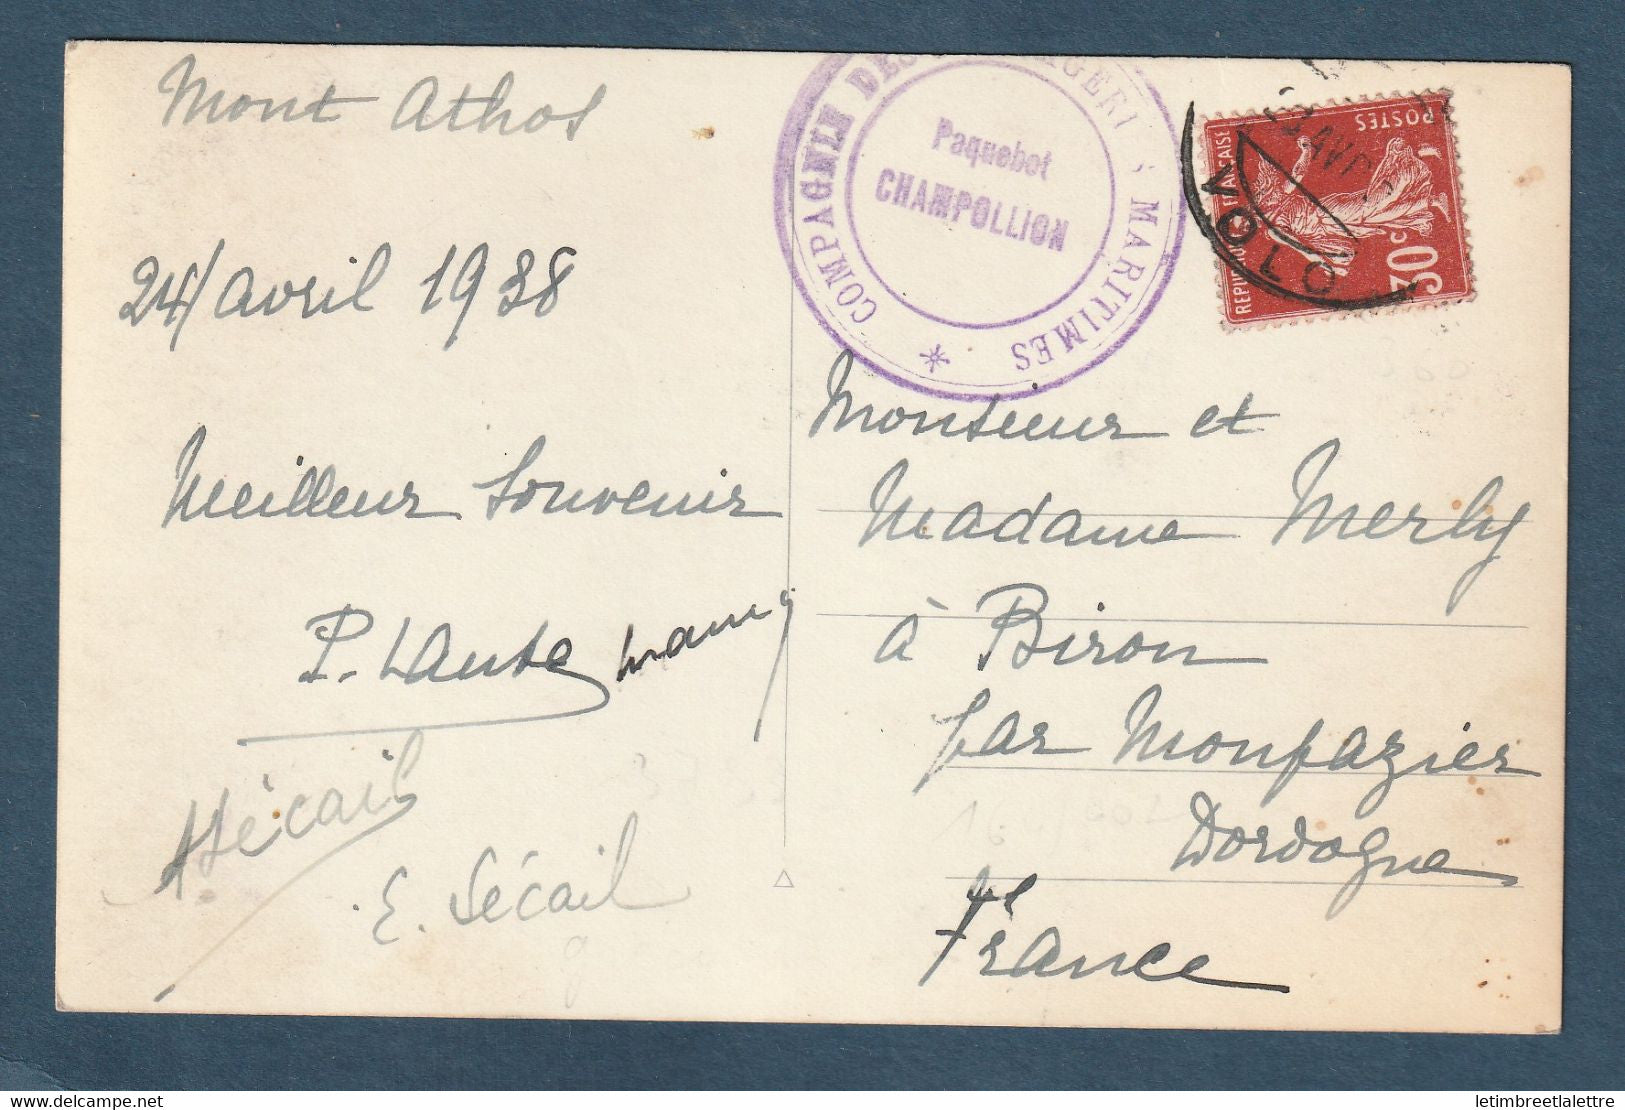 Mont Athos
24/ avril 1938
Meilleur Souvenir
P. Lante
Sécail
E. Sécail
COMPAGNIE DES MESSAGERIES MARITIMES
Paquebot
CHAMPOLLION
REPUBLIQUE FRANÇAISE
POSTES
30c
AVR
VOLO
Monsieur et
Madame Merly
à Biron
par Monpazier
Dordogne
France
www.delcampe.net
letimbreetlalettre